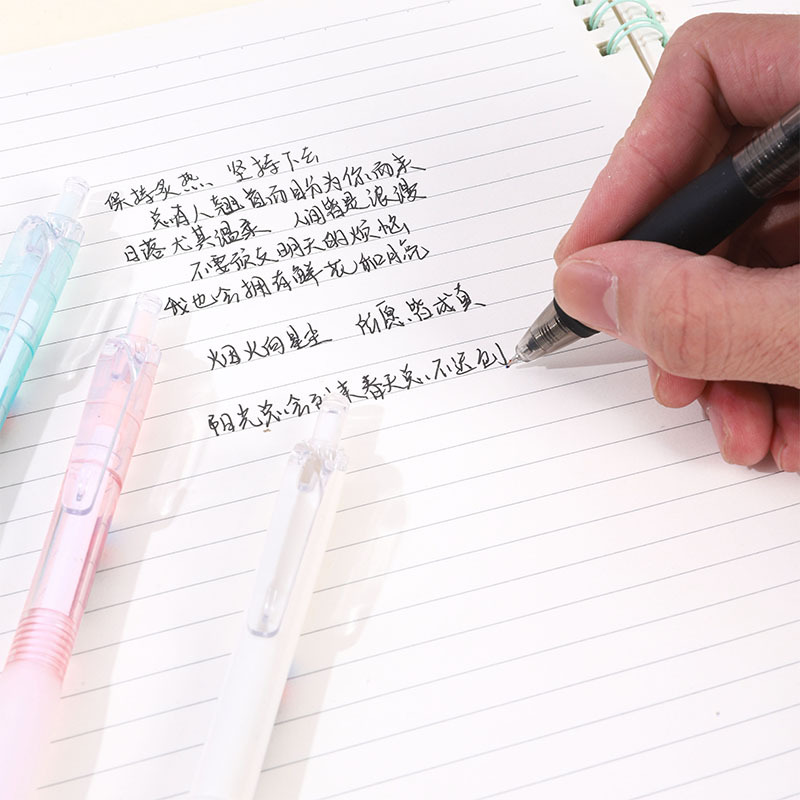 保持炙热 坚持下去
总有人翘首而盼为你而来
日落尤其温柔 人间皆是浪漫
不要预支明天的烦恼
我也会拥有鲜花和月亮
烟火向星尘 所愿皆成真
阳光总会到来春天总不迟到